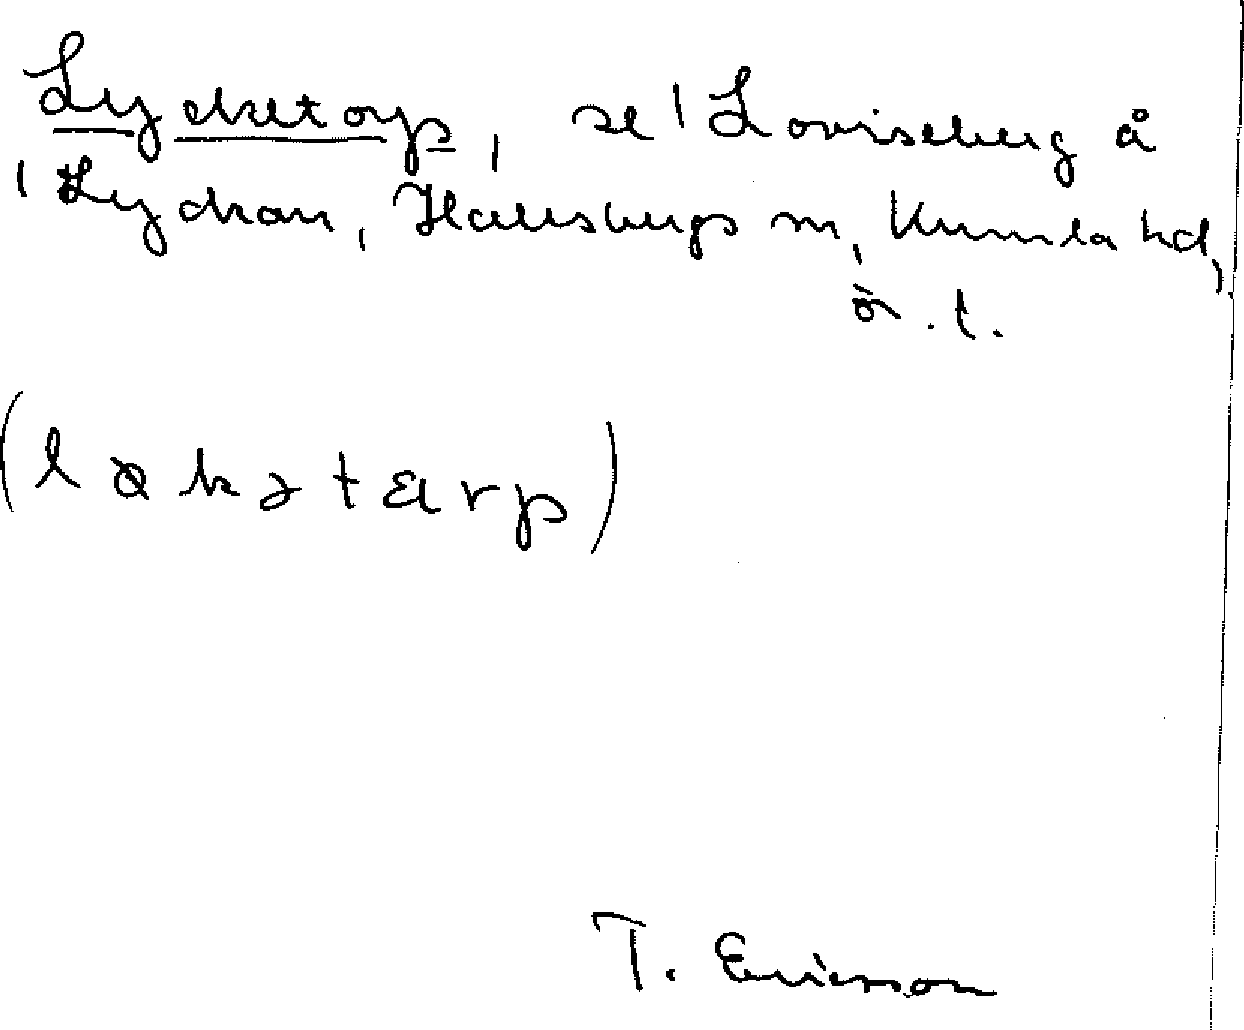 Lycketorp, se ' Loviseberg å
' Lyckan, Hallsbergs sn, Kumla hd,
ör. l.
T. Ericsson